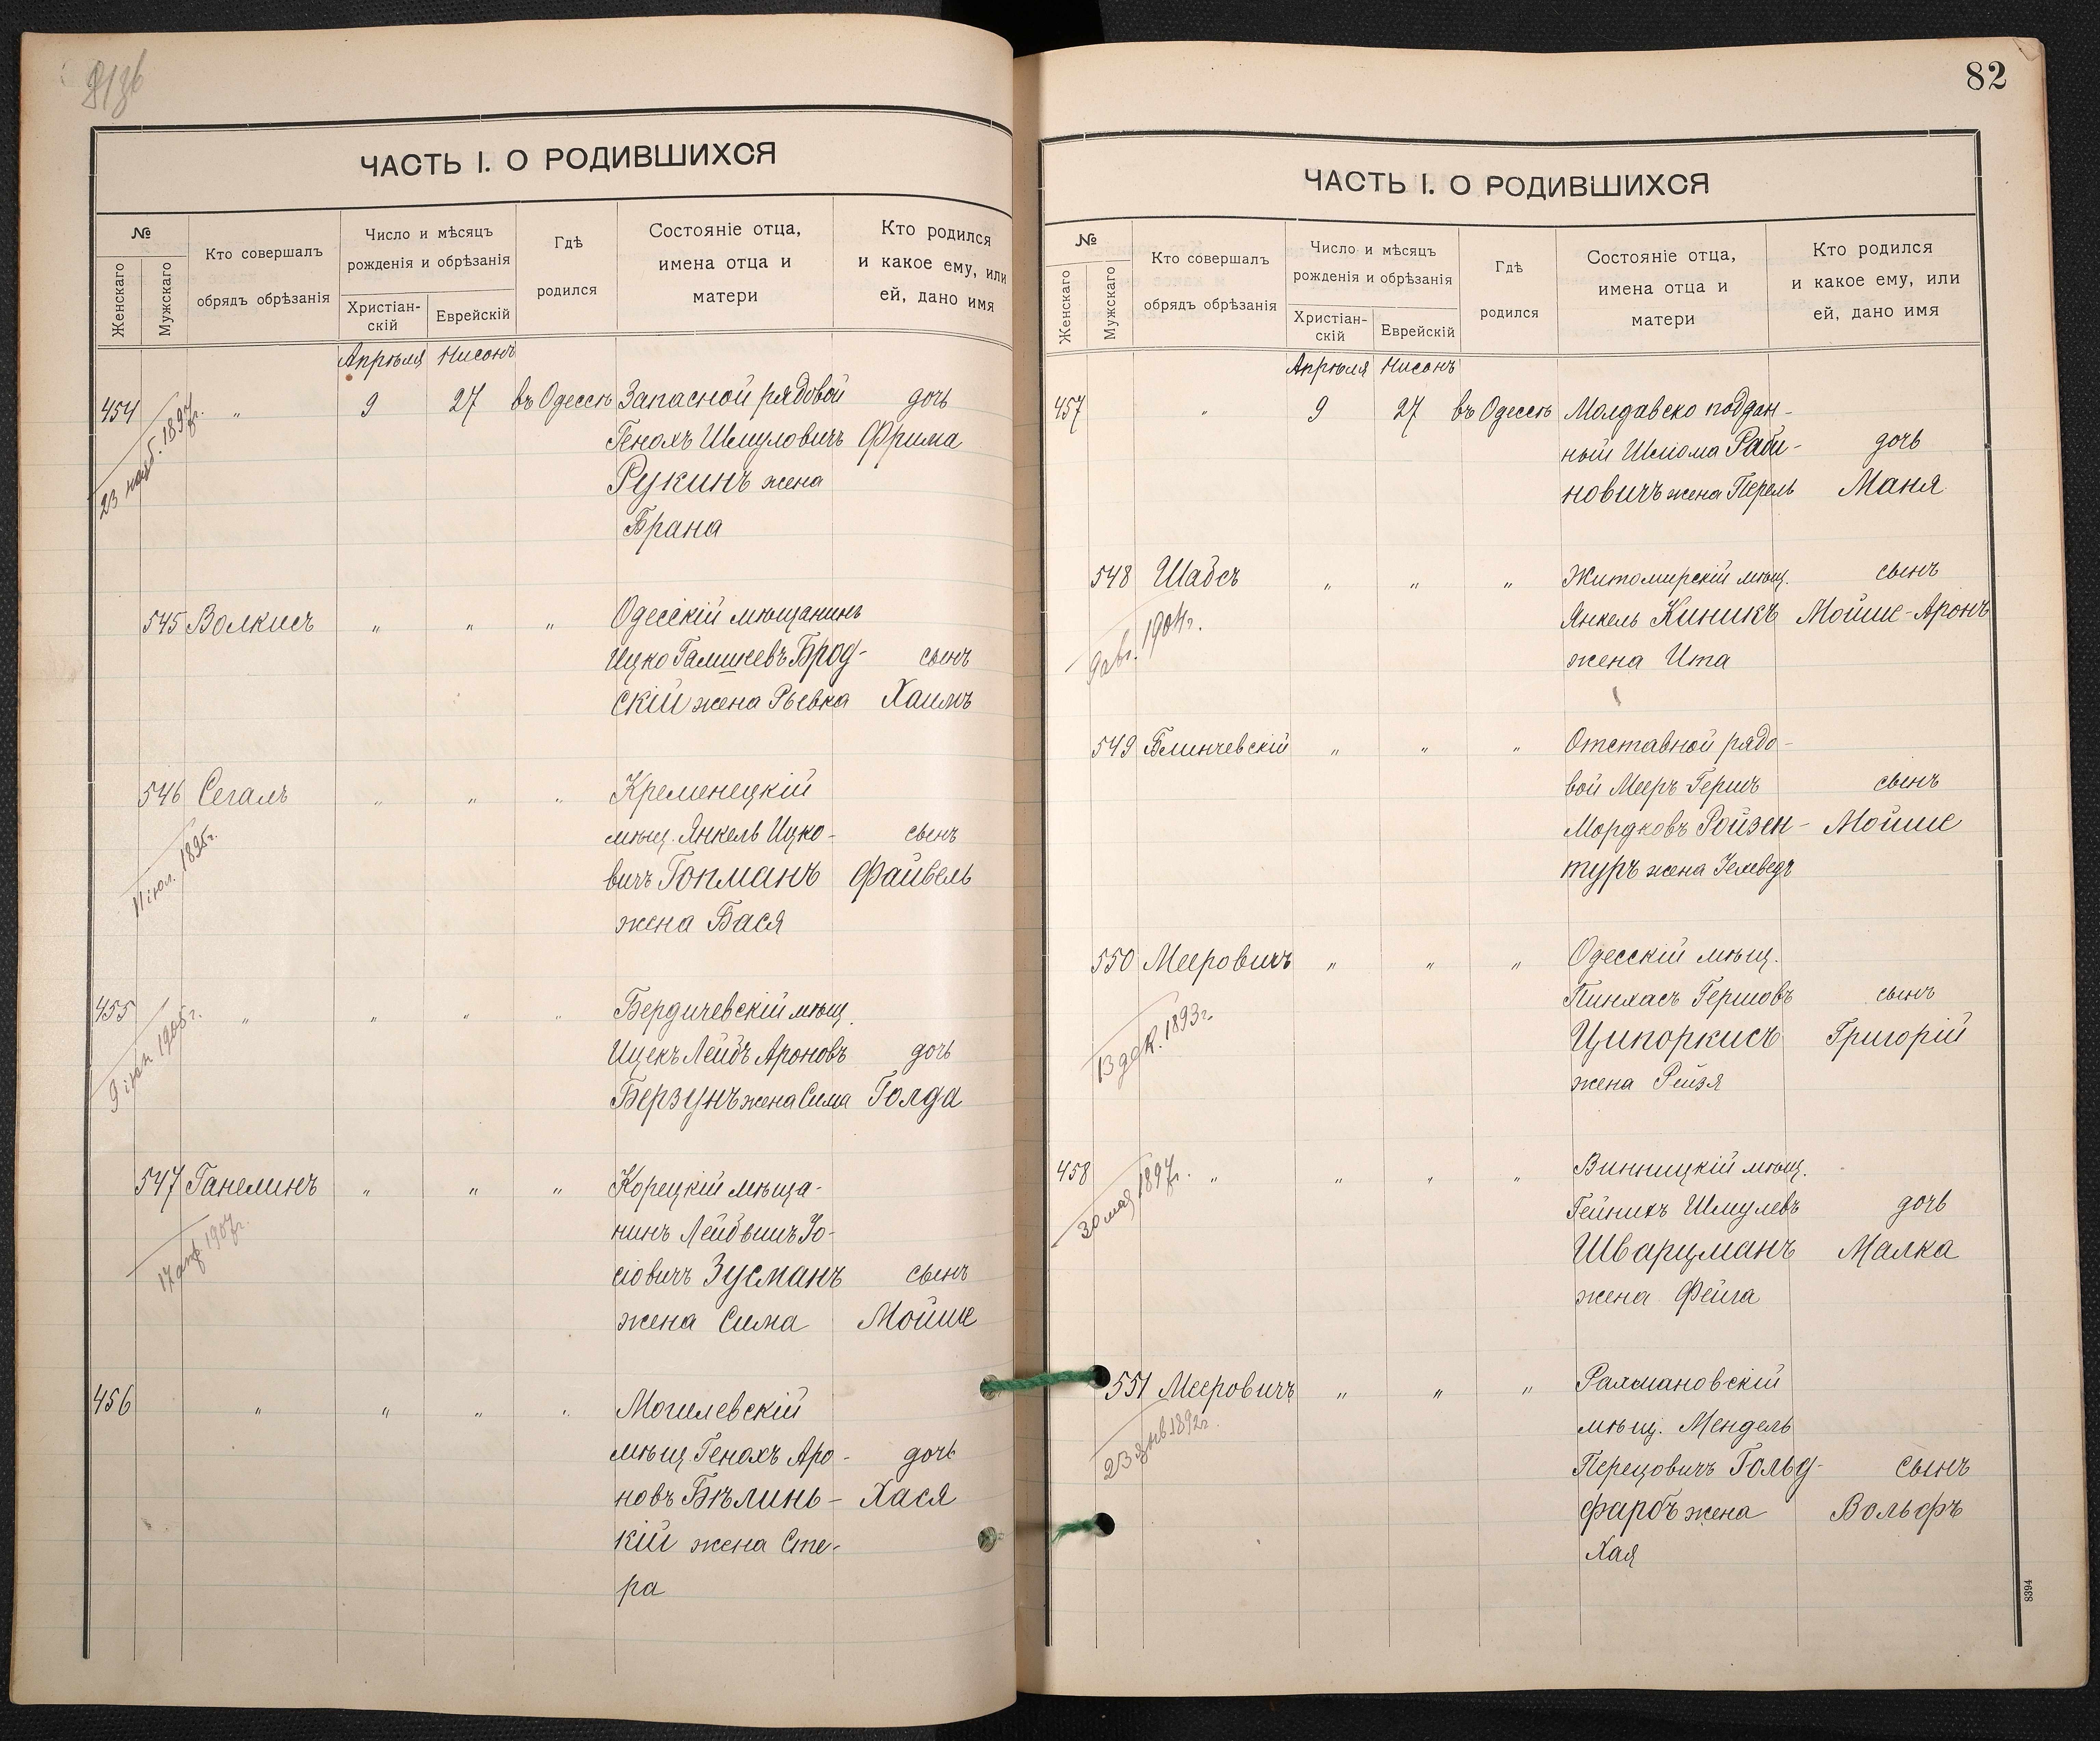 ЧАСТЬ I. О РОДИВШИХСЯ
№
Женскаго
Мужскаго
Кто совершалъ
обрядъ обрѣзанія
Число и мѣсяцъ
рожденія и обрѣзанія
Христіан-
скій
Еврейскій
Гдѣ
родился
Состояніе отца,
имена отца и
матери
Кто родился
и какое ему, или
ей, дано имя
Апрѣля Нисонъ
454 " 9 27 въ Одессѣ Запасной рядовой дочь
23 нояб. 1897г.
Генохъ Шмуловичъ Фрима
Рукинъ жена
Брана
545 Волкисъ " " " Одесскій мѣщанинъ
Ицко Галишевъ Брод- сынъ
скій жена Рывка Хаимъ
546 Сегалъ " " " Кременецкій
11 іюл. 1895г.
мѣщ. Янкель Ицко- сынъ
вичъ Гопманъ Файвель
жена Бася
455 " " " " Бердичевскій мѣщ.
1905г.
Ицекъ Лейбъ Ароновъ дочь
Берзунъ жена Сима Голда
547 Ганелинъ " " " Корецкій мѣща-
17 апр 1907г.
нинъ Лейбвишъ Іо-
сіовичъ Зусманъ сынъ
жена Сима Мойше
456 " " " " Могилевскій
мѣщ Генохъ Аро- дочь
новъ Бѣлинь- Хася
кій жена Сте-
ра
82
ЧАСТЬ I. О РОДИВШИХСЯ
№
Женскаго
Мужскаго
Кто совершалъ
обрядъ обрѣзанія
Число и мѣсяцъ
рожденія и обрѣзанія
Христіан-
скій
Еврейскій
Гдѣ
родился
Состояніе отца,
имена отца и
матери
Кто родился
и какое ему, или
ей, дано имя
Апрѣля Нисонъ
457 " 9 27 въ Одессѣ Молдавско поддан-
ный Шлiома Раби- дочь
новичъ жена Перель Маня
548 Шабсъ " " " Житомирскій мѣщ. сынъ
1904г.
Янкель Киникъ Мойше-Аронъ
жена Ита
549 Блинчевскій " " " Отставной рядо-
вой Мееръ Гершъ сынъ
Мордковъ Ройзен- Мойше
туръ жена
550 Мееровичъ " " " Одесскій мѣщ.
13 дек. 1893г.
Пинхасъ Гершовъ сынъ
Ципоркисъ Григорій
жена Рейзя
458 " " " " Винницкій мѣщ.
30 мая 1897г.
Гейнихъ Шмулевъ дочь
Шварцманъ Малка
жена Фейга
551 Мееровичъ " " " Рахмановскій
23 янв 1892г.
мѣщ. Мендель
Перецовичъ Гольд- сынъ
фарбъ жена Вольфъ
Хая
8394